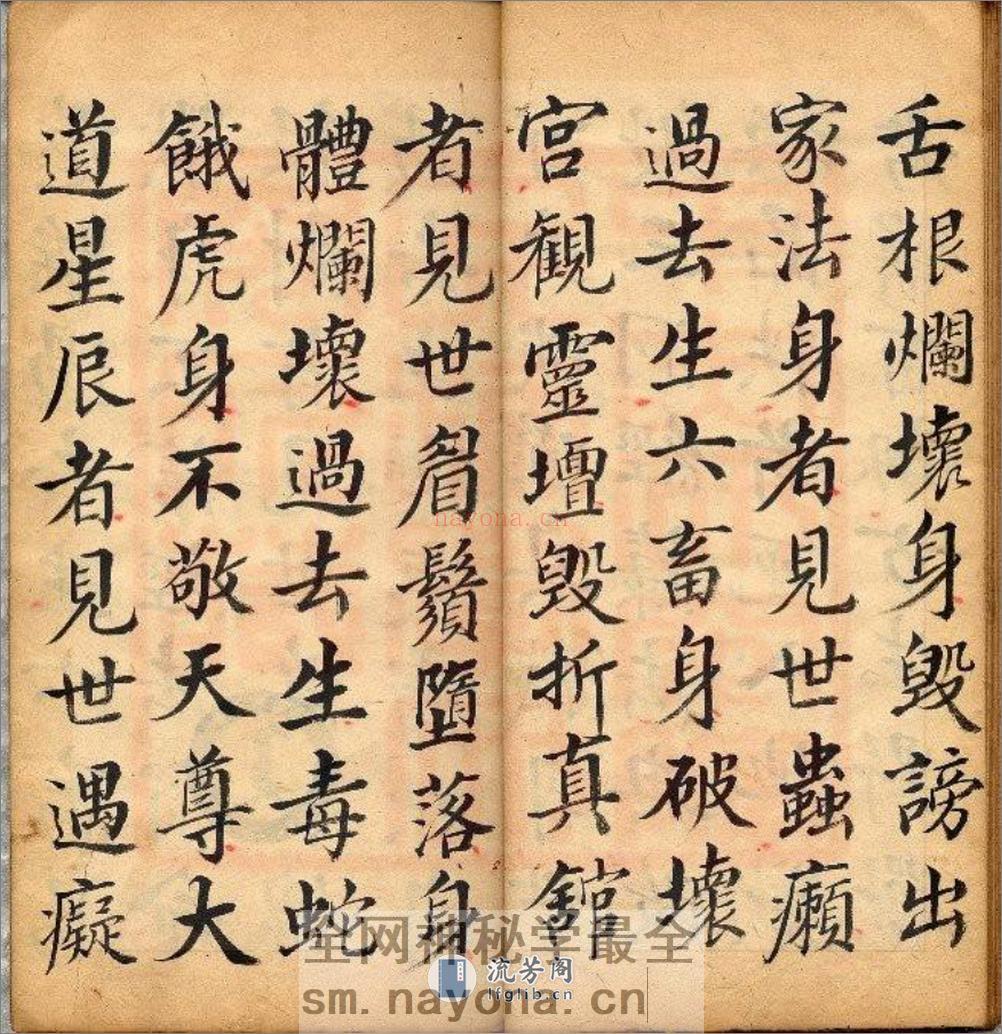 舌根爛壞身毀謗出
家法身者見世蟲癩
過去生六畜身破壞
宮觀靈壇毀折真舘
者見世眉鬚墮落身
體爛壞過去生毒蛇
餓虎身不敬天尊大
道星辰者見世遇癡
nayona.cn
全网神秘学最全
流芳阁
lfglib.cn
sm.nayona.cn